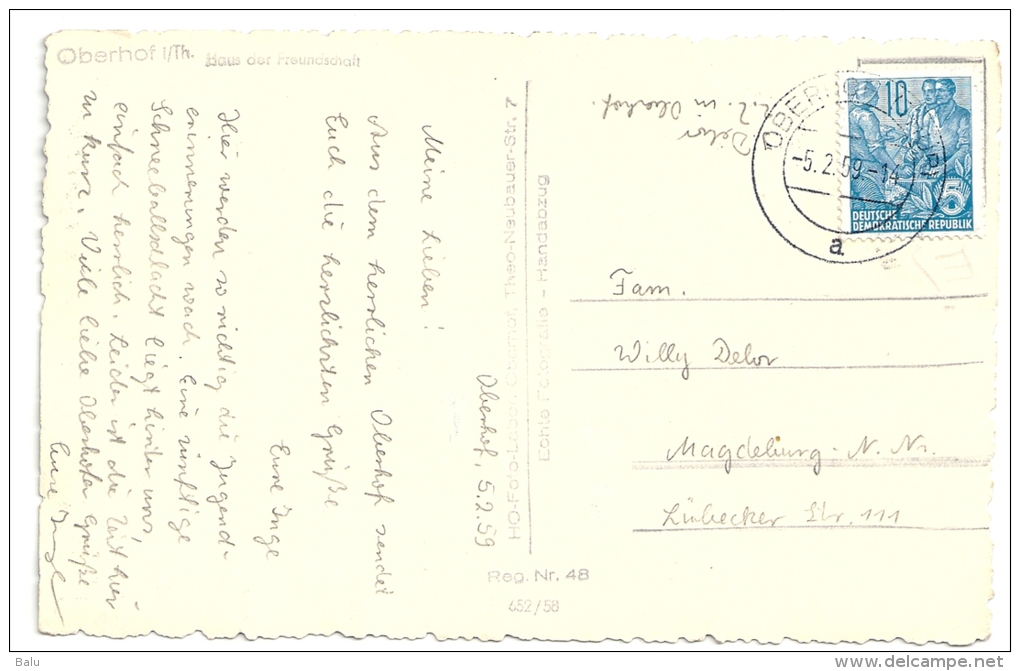 Oberhof i/Th. Haus der Freundschaft
Oberhof, 5.2.59
Meine Lieben!
Aus dem herrlichen Oberhof sendet
Euch die herzlichsten Grüße
Eure Inge
Hier werden so richtig die Jugend-
erinnerungen wach. Eine zünftige
Schneeballschlacht liegt hinter uns,
einfach herrlich. Leider ist die Zeit hier
zu kurz. Viele liebe Oberhofer Grüße
Eure Inge
HO-Foto-Labor, Oberhof, Theo-Neubauer-Str. 2
Echte Fotografie - Handabzug
Reg. Nr. 48
652/58
z.Z. in Oberhof.
OBERHOF
-5.2.59-14
a
10
5
DEUTSCHE
DEMOKRATISCHE REPUBLIK
Fam.
Willy Delor
Magdeburg - N. N.
Lübecker Str. 111
Balu
http://www.delcampe.net